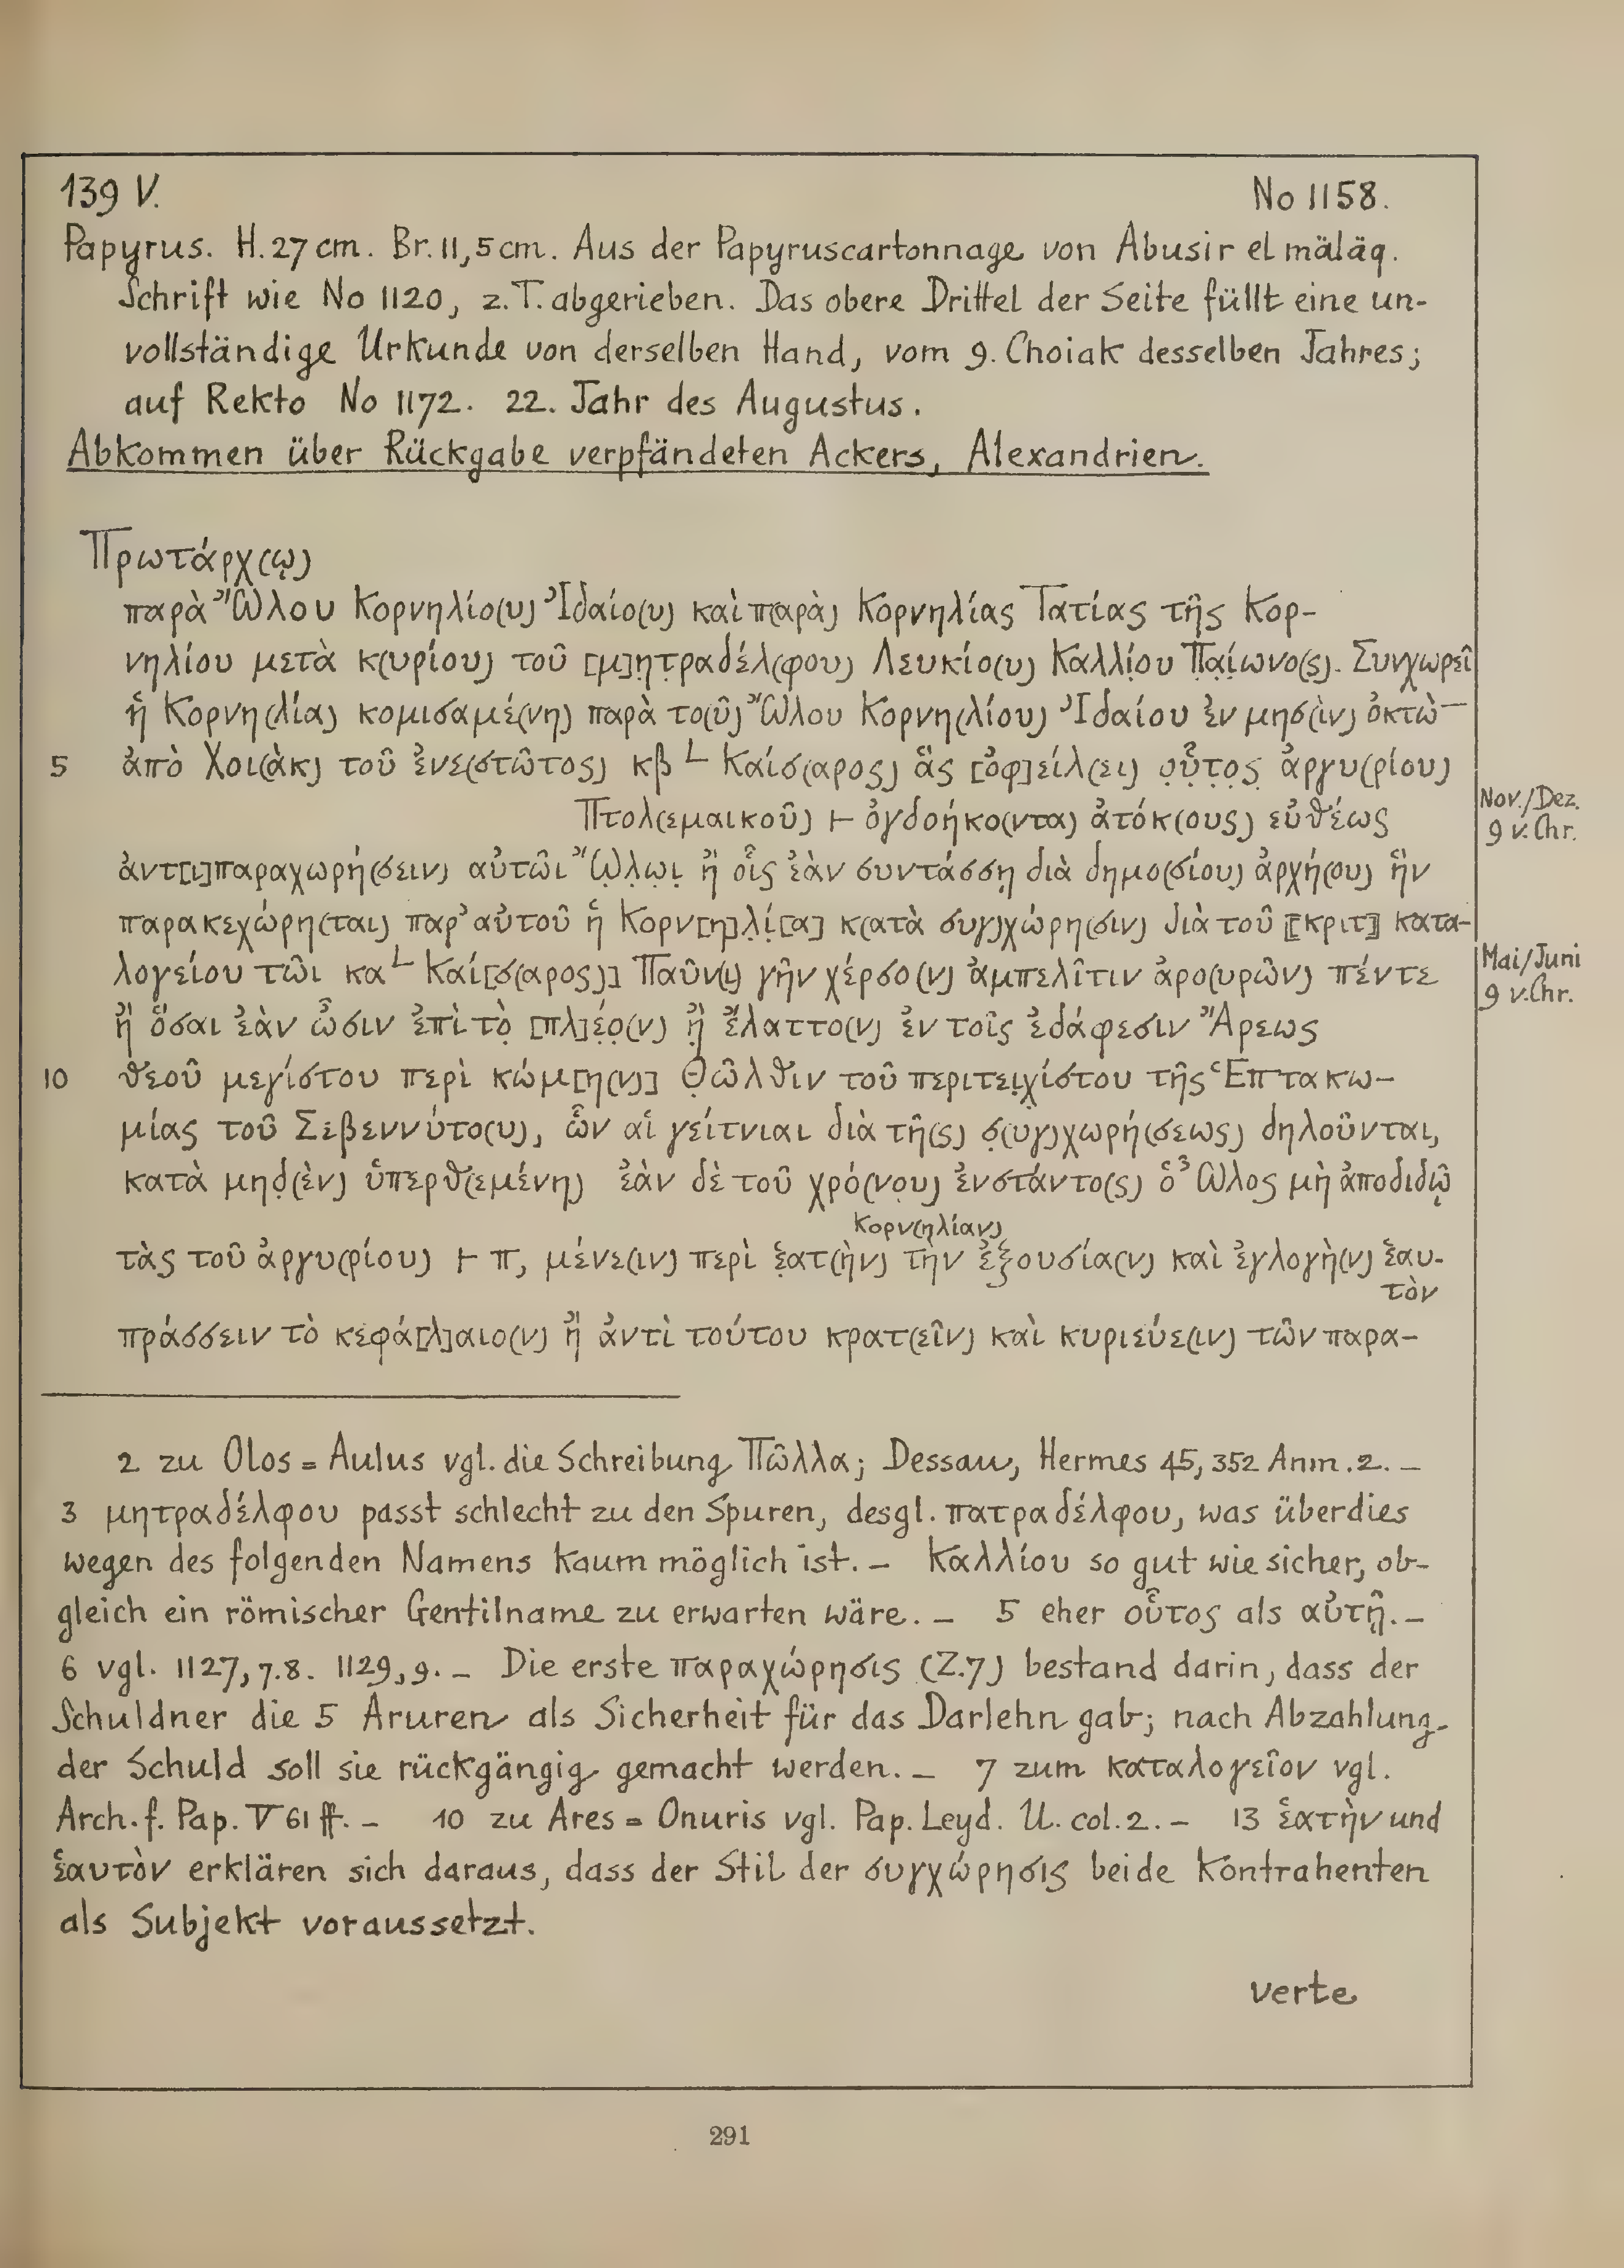 139 V. No 1158.
Papyrus. H. 27 cm. Br. 11,5 cm. Aus der Papyruscartonnage von Abusir el mäläq.
Schrift wie No 1120, z.T. abgerieben. Das obere Drittel der Seite füllt eine un-
vollständige Urkunde von derselben Hand, vom 9. Choiak desselben Jahres;
auf Rekto No 1172. 22. Jahr des Augustus.
Abkommen über Rückgabe verpfändeten Ackers, Alexandrien.
Πρωτάρχ(ῳ)
παρὰ Ὤλου Κορνηλίο(υ) Ἰδαίο(υ) καὶ π(αρὰ) Κορνηλίας Τατίας τῆς Κορ-
νηλίου μετὰ κ(υρίου) τοῦ [μ]η̣τ̣ραδέλ(φου) Λευκίο(υ) Καλλί̣ου Π̣α̣ί̣ωνο(ς). Συνχωρεῖ
ἡ Κορνη(λία) κομισαμέ(νη) παρὰ το(ῦ) Ὤλου Κορνη(λίου) Ἰδαίου ἐν μησ(ὶν) ὀκτὼ
5 ἀπὸ Χοι(ὰκ) τοῦ ἐνε(στῶτος) κβ L Καίσ(αρος) ἃς [ὀφ]είλ(ει) ο̣ὗ̣τ̣ο̣ς̣ ἀργυ(ρίου)
Πτολ(εμαικοῦ) ⊢ ὀγδοήκο(ντα) ἀτόκ(ους) εὐθέως
Nov./Dez.
9 v. Chr.
ἀντ[ι]παραχωρή(σειν) αὐτῶι Ὤ̣λ̣ω̣ι̣ ἢ οἷς ἐὰν συντάσσῃ διὰ δημο(σίου) ἀρχή(ου) ἣν
παρακεχώρη(ται) παρ' αὐτοῦ ἡ Κορν[η]λ̣ί̣[α] κ(ατὰ συγ)χώρη(σιν) διὰ τοῦ ⟦κριτ⟧ κατα-
λογείου τῶι κα L Καί[σ(αρος)] Παῦν(ι) γῆν χέρσο(ν) ἀμπελῖτιν ἀρο(υρῶν) πέντε
Mai/Juni
9 v. Chr.
ἢ ὅσαι ἐὰν ὦσιν ἐπὶ τὸ̣ [πλ]έ̣ο̣(ν) ἢ̣ ἔλαττο(ν) ἐν τοῖς ἐδάφεσιν Ἄρεως
10 θεοῦ μεγίστου περὶ κώμ[η(ν)] Θ̣ῶλθιν τοῦ περιτει̣χ̣ίστου τῆς Ἑπτακω-
μίας τοῦ Σεβεννύτο(υ), ὧν αἱ γείτνιαι διὰ τῆ(ς) σ̣(υγ)χωρή(σεως) δηλοῦνται,
κατὰ μηδ̣(ὲν) ὑπερθ(εμένη) ἐὰν δὲ τοῦ χρό(νο̣υ) ἐνστάντο(ς) ὁ Ὦλος μὴ ἀποδιδῷ
Κορν(ηλίαν)
τὰς τοῦ ἀργυ(ρίου) ⊢ π, μένε(ιν) περὶ ἑ̣ατ(ὴν) τὴν ἐξουσία(ν) καὶ ἐγλογὴ(ν) ἑαυ-
τὸν
πράσσειν τὸ κεφά[λ]αιο(ν) ἢ ἀντὶ τούτου κρατ(εῖν) καὶ κυριεύε(ιν) τῶν παρα-
2 zu Olos = Aulus vgl. die Schreibung Πῶλλα; Dessau, Hermes 45, 352 Anm. 2. –
3 μητραδέλφου passt schlecht zu den Spuren, desgl. πατραδέλφου, was überdies
wegen des folgenden Namens kaum möglich ist. – Καλλίου so gut wie sicher, ob-
gleich ein römischer Gentilname zu erwarten wäre. – 5 eher οὗτος als αὐτῇ. –
6 vgl. 1127, 7.8. 1129, 9. – Die erste παραχώρησις (Z.7) bestand darin, dass der
Schuldner die 5 Aruren als Sicherheit für das Darlehn gab; nach Abzahlung
der Schuld soll sie rückgängig gemacht werden. – 7 zum καταλογεῖον vgl.
Arch. f. Pap. V 61 ff. – 10 zu Ares = Onuris vgl. Pap. Leyd. U. col. 2. – 13 ἑατὴν und
ἑαυτὸν erklären sich daraus, dass der Stil der συγχώρησις beide Kontrahenten
als Subjekt voraussetzt.
verte
291